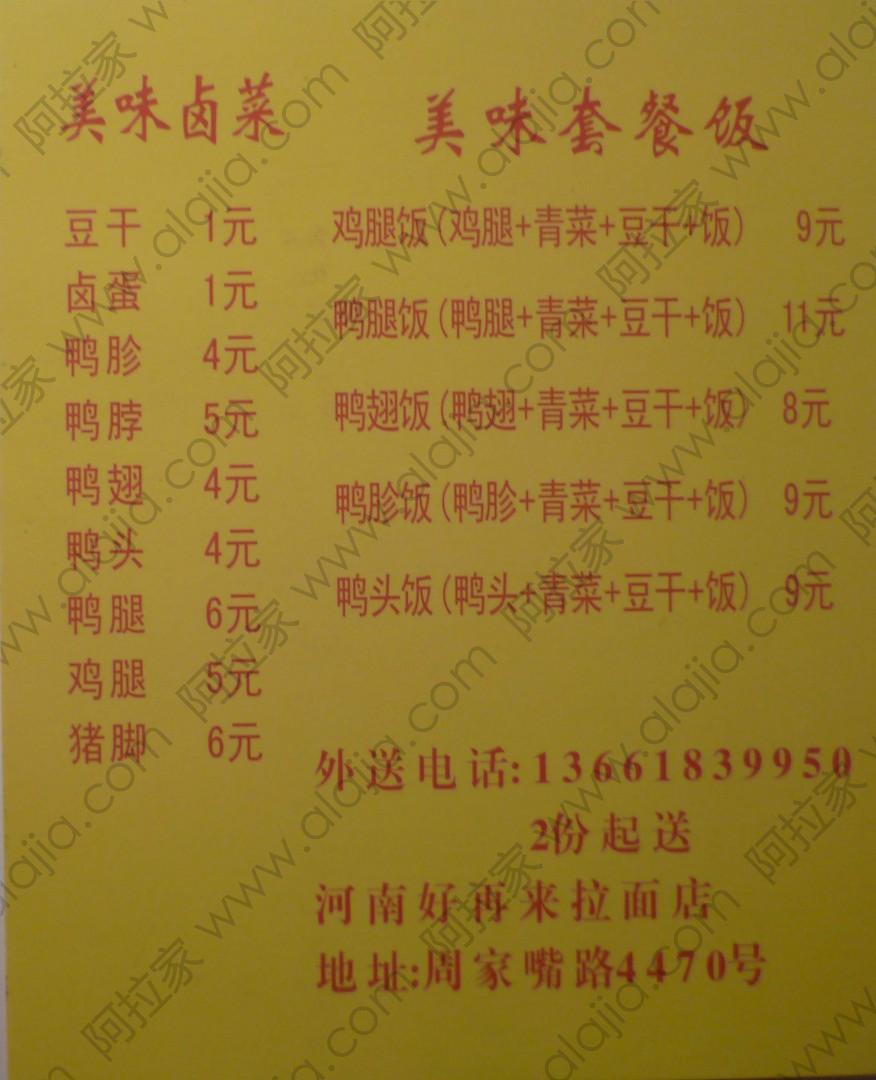 美味卤菜
豆干 1元
卤蛋 1元
鸭胗 4元
鸭脖 5元
鸭翅 4元
鸭头 4元
鸭腿 6元
鸡腿 5元
猪脚 6元
美味套餐饭
鸡腿饭(鸡腿+青菜+豆干+饭) 9元
鸭腿饭(鸭腿+青菜+豆干+饭) 11元
鸭翅饭(鸭翅+青菜+豆干+饭) 8元
鸭胗饭(鸭胗+青菜+豆干+饭) 9元
鸭头饭(鸭头+青菜+豆干+饭) 9元
外送电话:13661839950
2份起送
河南好再来拉面店
地址:周家嘴路4470号
阿拉家 www.alajia.com